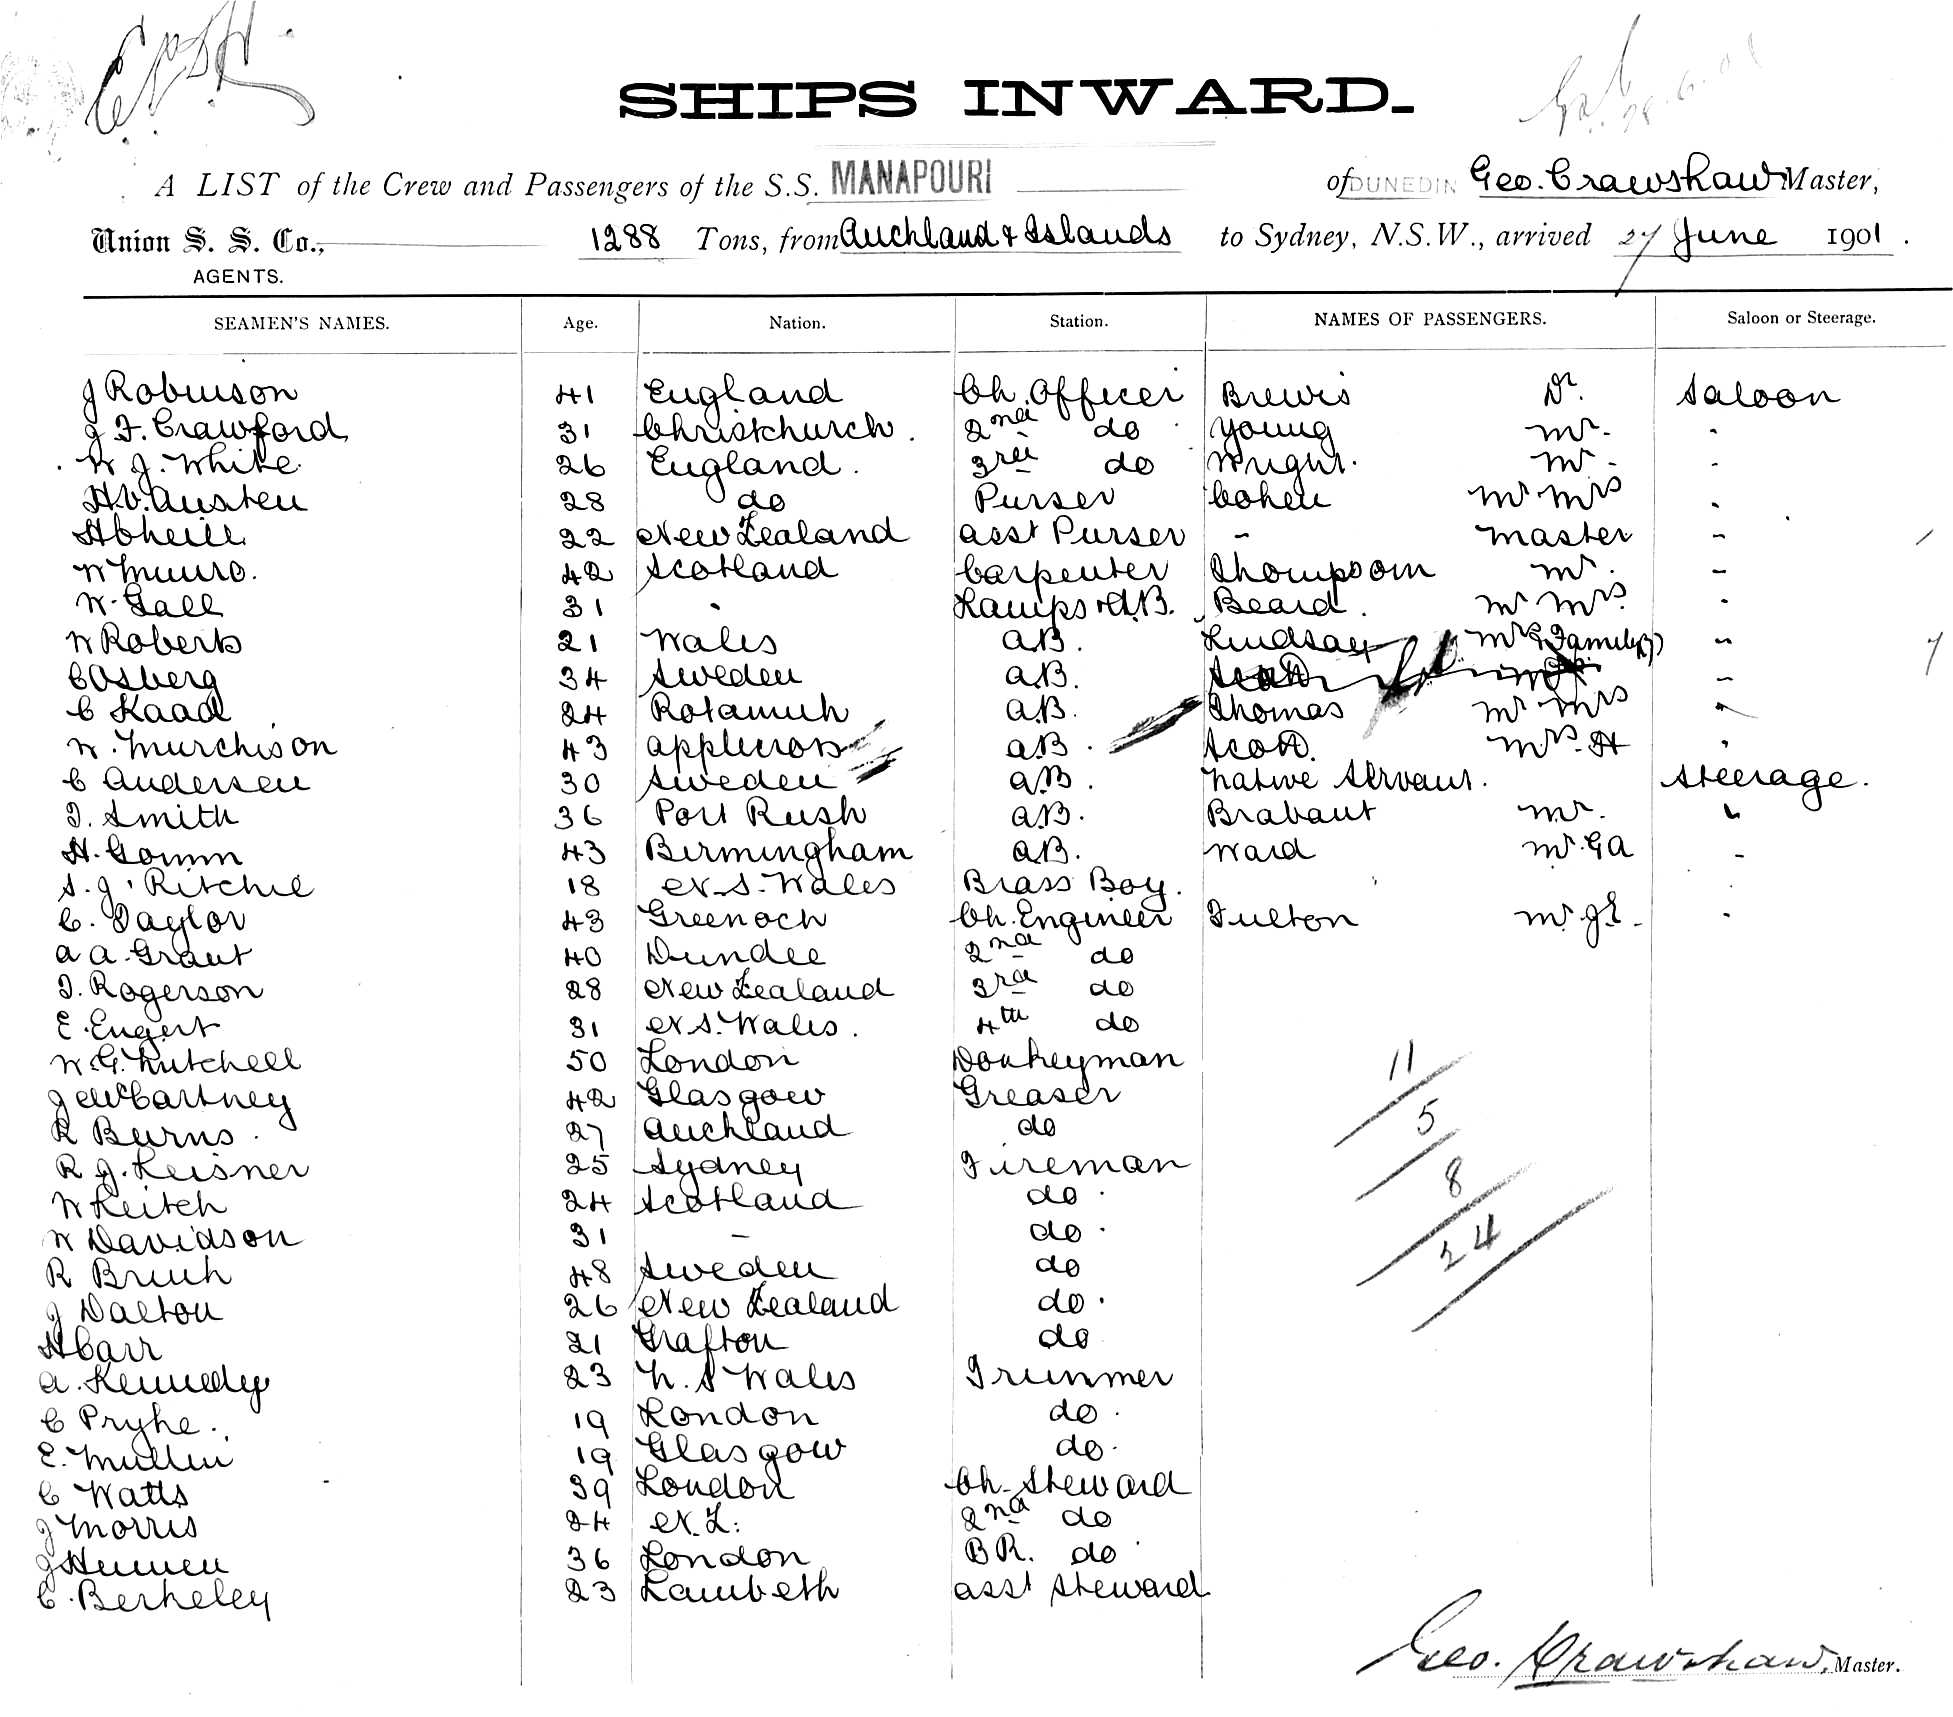 SHIPS INWARD.
A LIST of the Crew and Passengers of the S.S. MANAPOURI of DUNEDIN Geo. Crawshaw Master,
Union S. S. Co., 1288 Tons, from Auckland & Islands to Sydney, N.S.W., arrived 27 June 1901.
AGENTS.
SEAMEN'S NAMES. Age. Nation. Station. NAMES OF PASSENGERS. Saloon or Steerage.
J Robinson 41 England Ch. Officer Brewis Dr. Saloon
J F. Crawford 31 Christchurch. 2nd do Young Mr. "
W J. White 26 England. 3rd do Wright. Mr. "
H.V. Austen 28 do Purser Cohen Mr Mrs "
H O'Neill 22 New Zealand asst Purser - Master "
W Munro. 42 Scotland Carpenter Thompson Mr. "
W. Gall 31 " Lamps & A.B. Beard. Mr Mrs. "
W Roberts 21 Wales A.B. Lindsay Mrs & Family (3) "
C Osberg 34 Sweden A.B. "
C Kaad 24 Rotamuh A.B. Thomas Mr Mrs "
W. Murchison 43 Applecross A.B. Scott. Mrs. H "
C Andersen 30 Sweden A.B. Native Servant. Steerage.
T. Smith 36 Port Rush A.B. Brabant Mr. "
H. Gomm 43 Birmingham A.B. Ward Mr. G A "
S. J. Ritchie 18 N.S. Wales Brass Boy.
C. Taylor 43 Greenock Ch. Engineer Fulton Mr. J E. "
A A. Grant 40 Dundee 2nd do
T. Rogerson 28 New Zealand 3rd do
E. Engert 31 N S. Wales. 4th do
W. G. Kutchell 50 London Donkeyman
J McCartney 42 Glasgow Greaser
R Burns. 27 Auckland do
R J. Leisner 25 Sydney Fireman
W Keitch 24 Scotland do.
W Davidson 31 - do.
R Bruh 48 Sweden do
J Dalton 26 New Zealand do.
H Carr 21 Grafton do
A. Kennedy 23 N. S Wales Trimmer
C Pryke. 19 London do.
E. Mullin 19 Glasgow do.
C Watts 39 London Ch. Steward
J Morris 24 N.Z. 2nd do
J 36 London B R. do
C. Berkeley 23 Lambeth asst Steward
11
5
8
24
Geo. Crawshaw. Master.